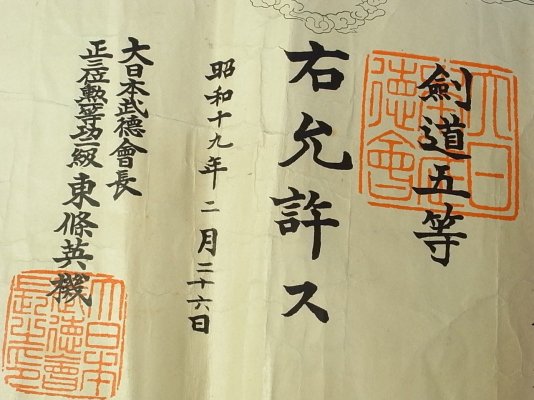 劍道五等
右允許ス
昭和十九年二月二十六日
大日本武德會長
正三位勲一等功二級 東條英機
大日本武德會